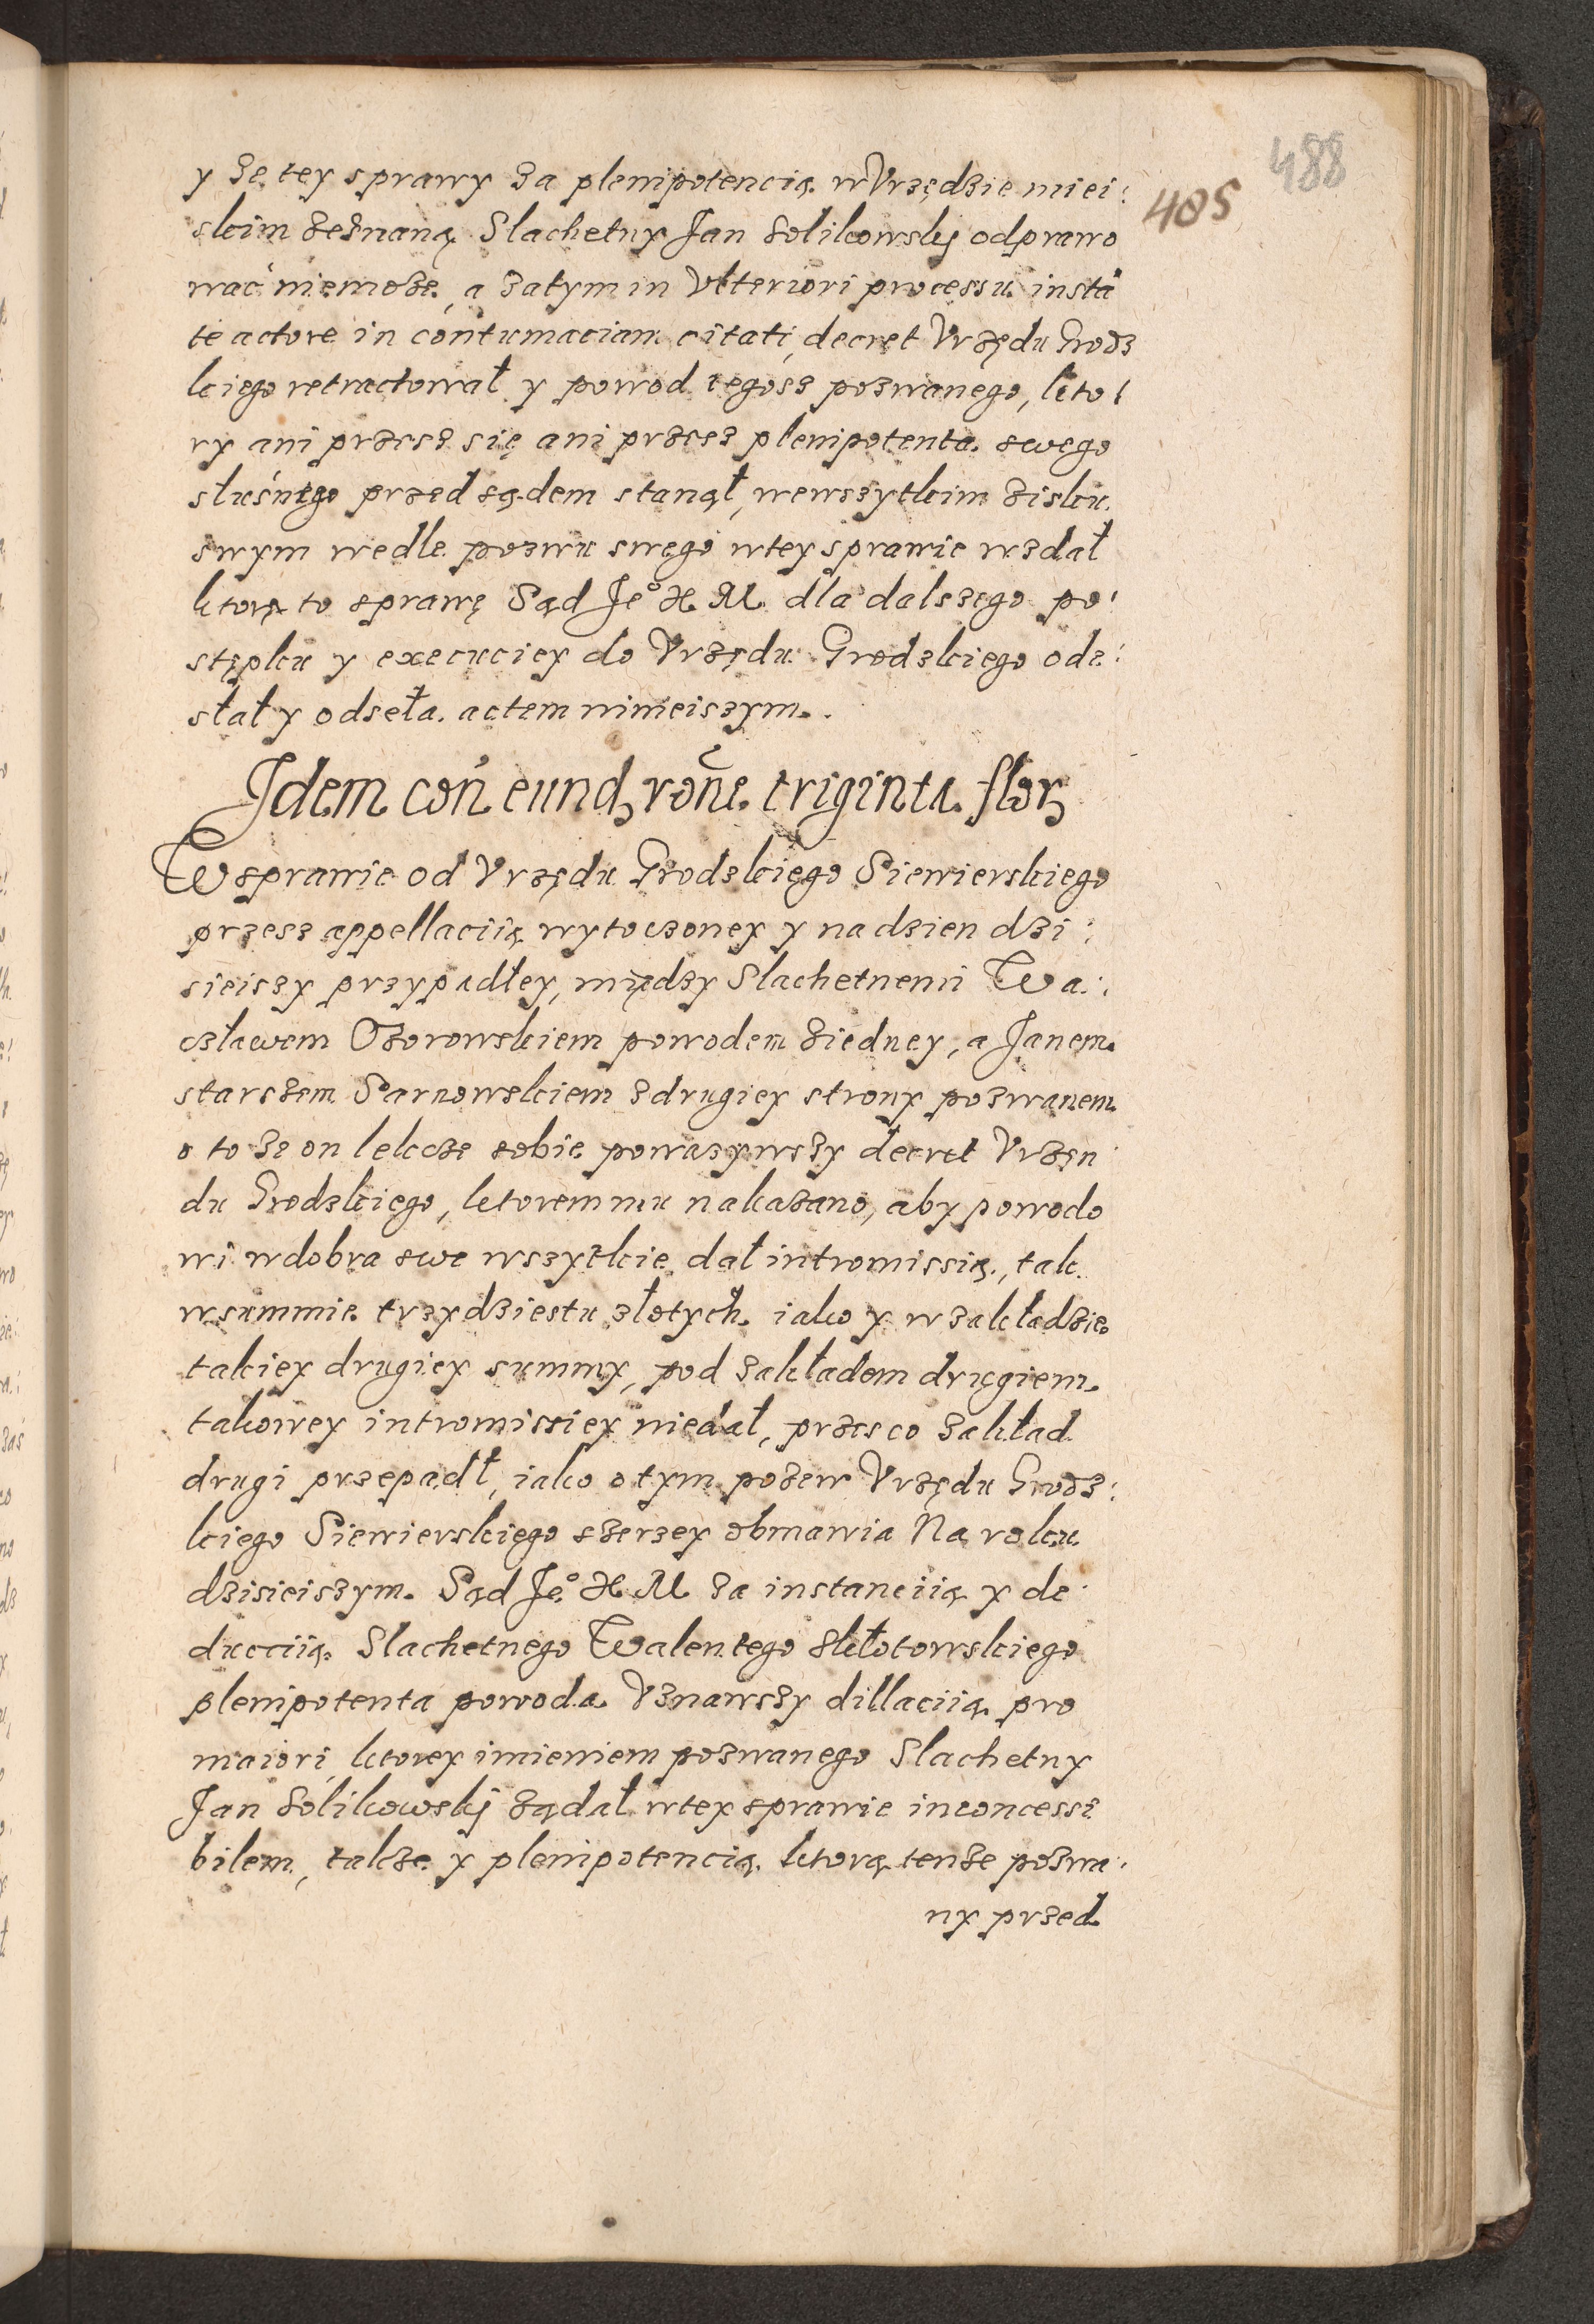 488
485
y że tey sprawy za plenipotencią w Vrzędzie miei:
skim zeznaną Slachetny Jan Solikowskj odprawo
wać niemoże, a zatym in Vlteriori processu instā
te actore in contumaciam citati, decret Vrzędu Grodz
kiego retractował y powod tegosz pozwanego, kto:
ry ani przesz się ani przesz plenipotenta swego
słusnego przed sądem stanął, wewszytkim zisku
swym wedle pozwu swego wtey sprawie wzdał
ktorą to sprawę Sąd Je° X M dla dalszego po:
stępku y execuciey do Vrzędu Grodzkiego ode:
słał y odseła actem nimieiszym.
Idem coń eund, rōne triginta flor
W sprawie od Vrzędu Grodzkiego Siewierskiego
przesz appellaciią wytoczoney y na dzien dzi:
sieiszy przypadłey, między Slachetnemi Wa:
czławem Ożorowskiem powodem ziedney, a Janem
starszem Sarnowskiem zdrugiey strony pozwanem
o to że on lekcze sobie powazywszy decret Vrzęn
du Grodzkiego, ktorem mu nakazano, aby powodo
wi wdobra swe wszytkie dał intromissią, tak
wsummie trzydziestu złotych iako y wzakładzie
takiey drugiey summy, pod zakładem drugiem
takowey intromissiey niedał, przes co zakład
drugi przepadł, iako otym pozew Vrzędu Grodz:
kiego Siewierskiego szerzey obmawia Na roku
dzisieiszym. Sąd Je° X M za instanciią y de
ducciią Slachetnego Walentego Skłotowskiego
plenipotenta powoda Vznawszy dillaciią pro
maiori, ktorey imieniem pozwanego Slachetny
Jan Solikowskj żądał wtey sprawie inconcessi
bilem, takze y plenipotencią ktorą tenże pozwa:
ny przed